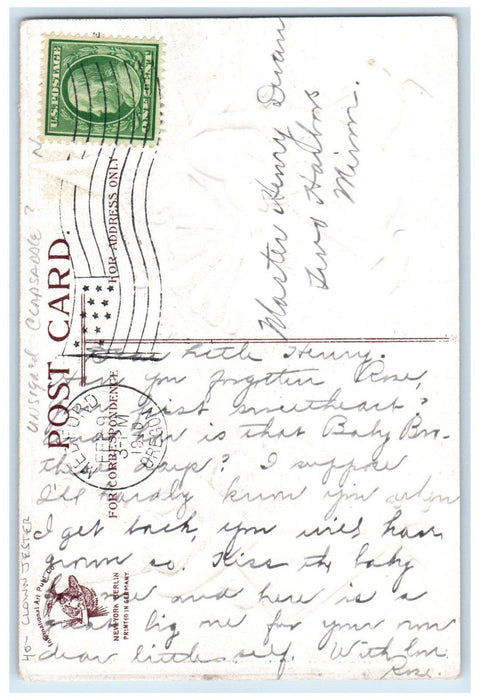 U.S. POSTAGE
ONE CENT
POST CARD.
FOR ADDRESS ONLY
FOR CORRESPONDENCE
UNSIGNED CLAPSADDLE ?
40- CLOWN JESTER
MEDFORD
FEB 9
3-PM
OREGON
International Art Publ. Co.
NEW YORK BERLIN
PRINTED IN GERMANY
Master Henry
Two Harbors
Minn.
Dear little Henry.
you forgotten Rose,
first sweetheart?
is that Baby Bro-
ther days? I suppose
I'll hardly know you when
I get back, you will have
grown so. Kiss the baby
for me and here is a
great big one for your own
dear little self. With love
Rose.